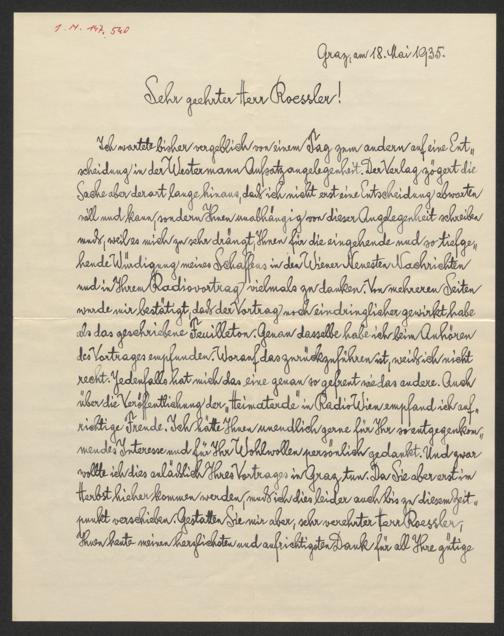 I. N. 147.540
Graz, am 18. Mai 1935.
Sehr geehrter Herr Roessler!
Ich wartete bisher vergeblich von einem Tag zum andern auf eine Ent„
scheidung in der Westermann Aufsatzangelegenheit. Der Verlag zögert die
Sache aber derart lange hinaus, daß ich nicht erst eine Entscheidung abwarten
will und kann, sondern Ihnen unabhängig von dieser Angelegenheit schreiben
muß, weil es mich zu sehr drängt, Ihnen für die eingehende und so tiefge„
hende Würdigung meines Schaffens in den Wiener Neuesten Nachrichten
und in Ihrem Radiovortrag vielmals zu danken. Von mehreren Seiten
wurde mir bestätigt, daß der Vortrag noch eindringlicher gewirkt habe
als das geschriebene Feuilleton. Genau dasselbe habe ich beim Anhören
des Vortrages empfunden. Worauf das zurückzuführen ist, weiß ich nicht
recht. Jedenfalls hat mich das eine genau so gefreut wie das andere. Auch
über die Veröffentlichung der „Heimaterde" in Radio Wien empfand ich auf„
richtige Freude. Ich hätte Ihnen unendlich gerne für Ihr so entgegenkom„
mendes Interesse und für Ihr Wohlwollen persönlich gedankt. Und zwar
wollte ich dies anläßlich Ihres Vortrages in Graz, tun. Da Sie aber erst im
Herbst hieher kommen werden, muß ich dies leider auch bis zu diesem Zeit„
punkt verschieben. Gestatten Sie mir aber, sehr verehrter Herr Roessler,
Ihnen heute meinen herzlichsten und aufrichtigsten Dank für all Ihre gütige